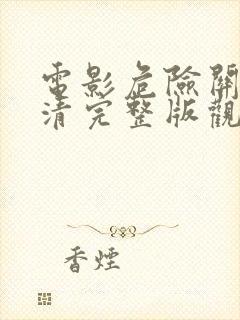 電影危險關
清完整版觀
香煙